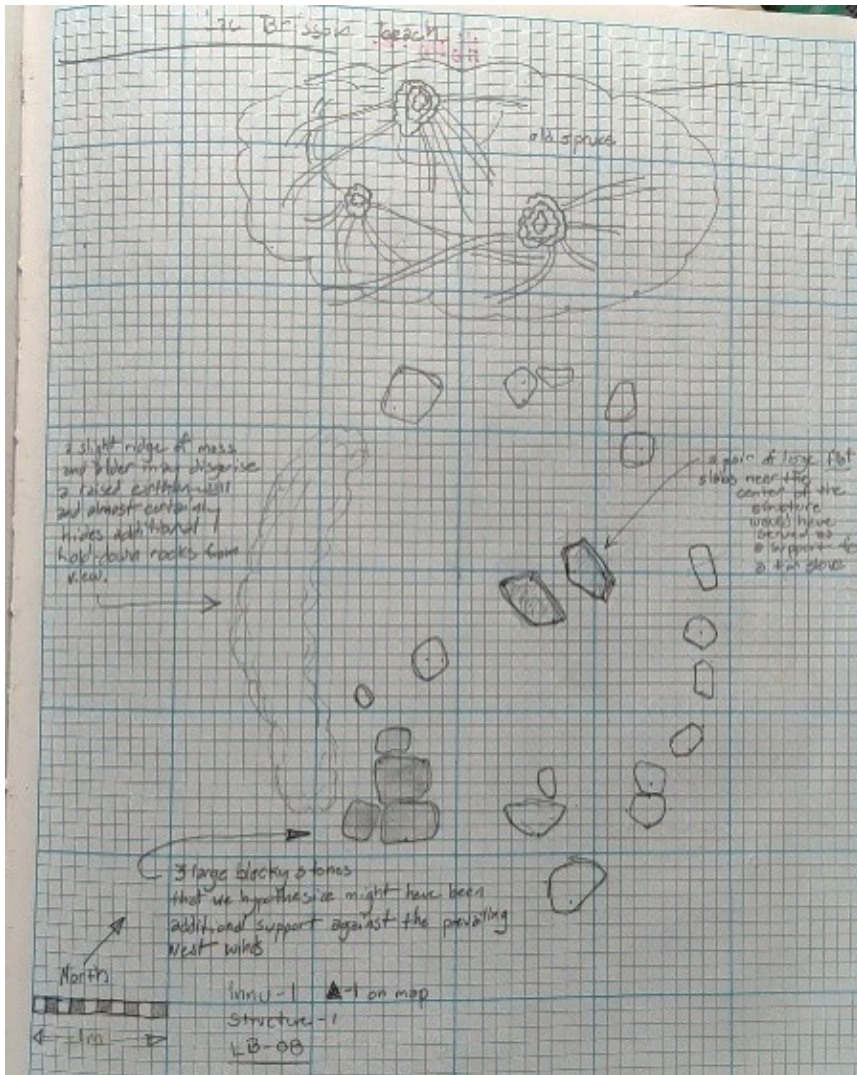 Lac Brisson beach
old spruce
a slight ridge of moss
and alder may disguise
a raised earthen wall
and almost certainly
hides additional
hold-down rocks from
view.
a pair of large flat
slabs near the
center of the
structure
would have
served as
a support fo
a tin stove
3 large blocky stones
that we hypothesize might have been
additional support against the prevailing
West winds
North
1m
Innu-1 ▲-1 on map
Structure-1
LB-08